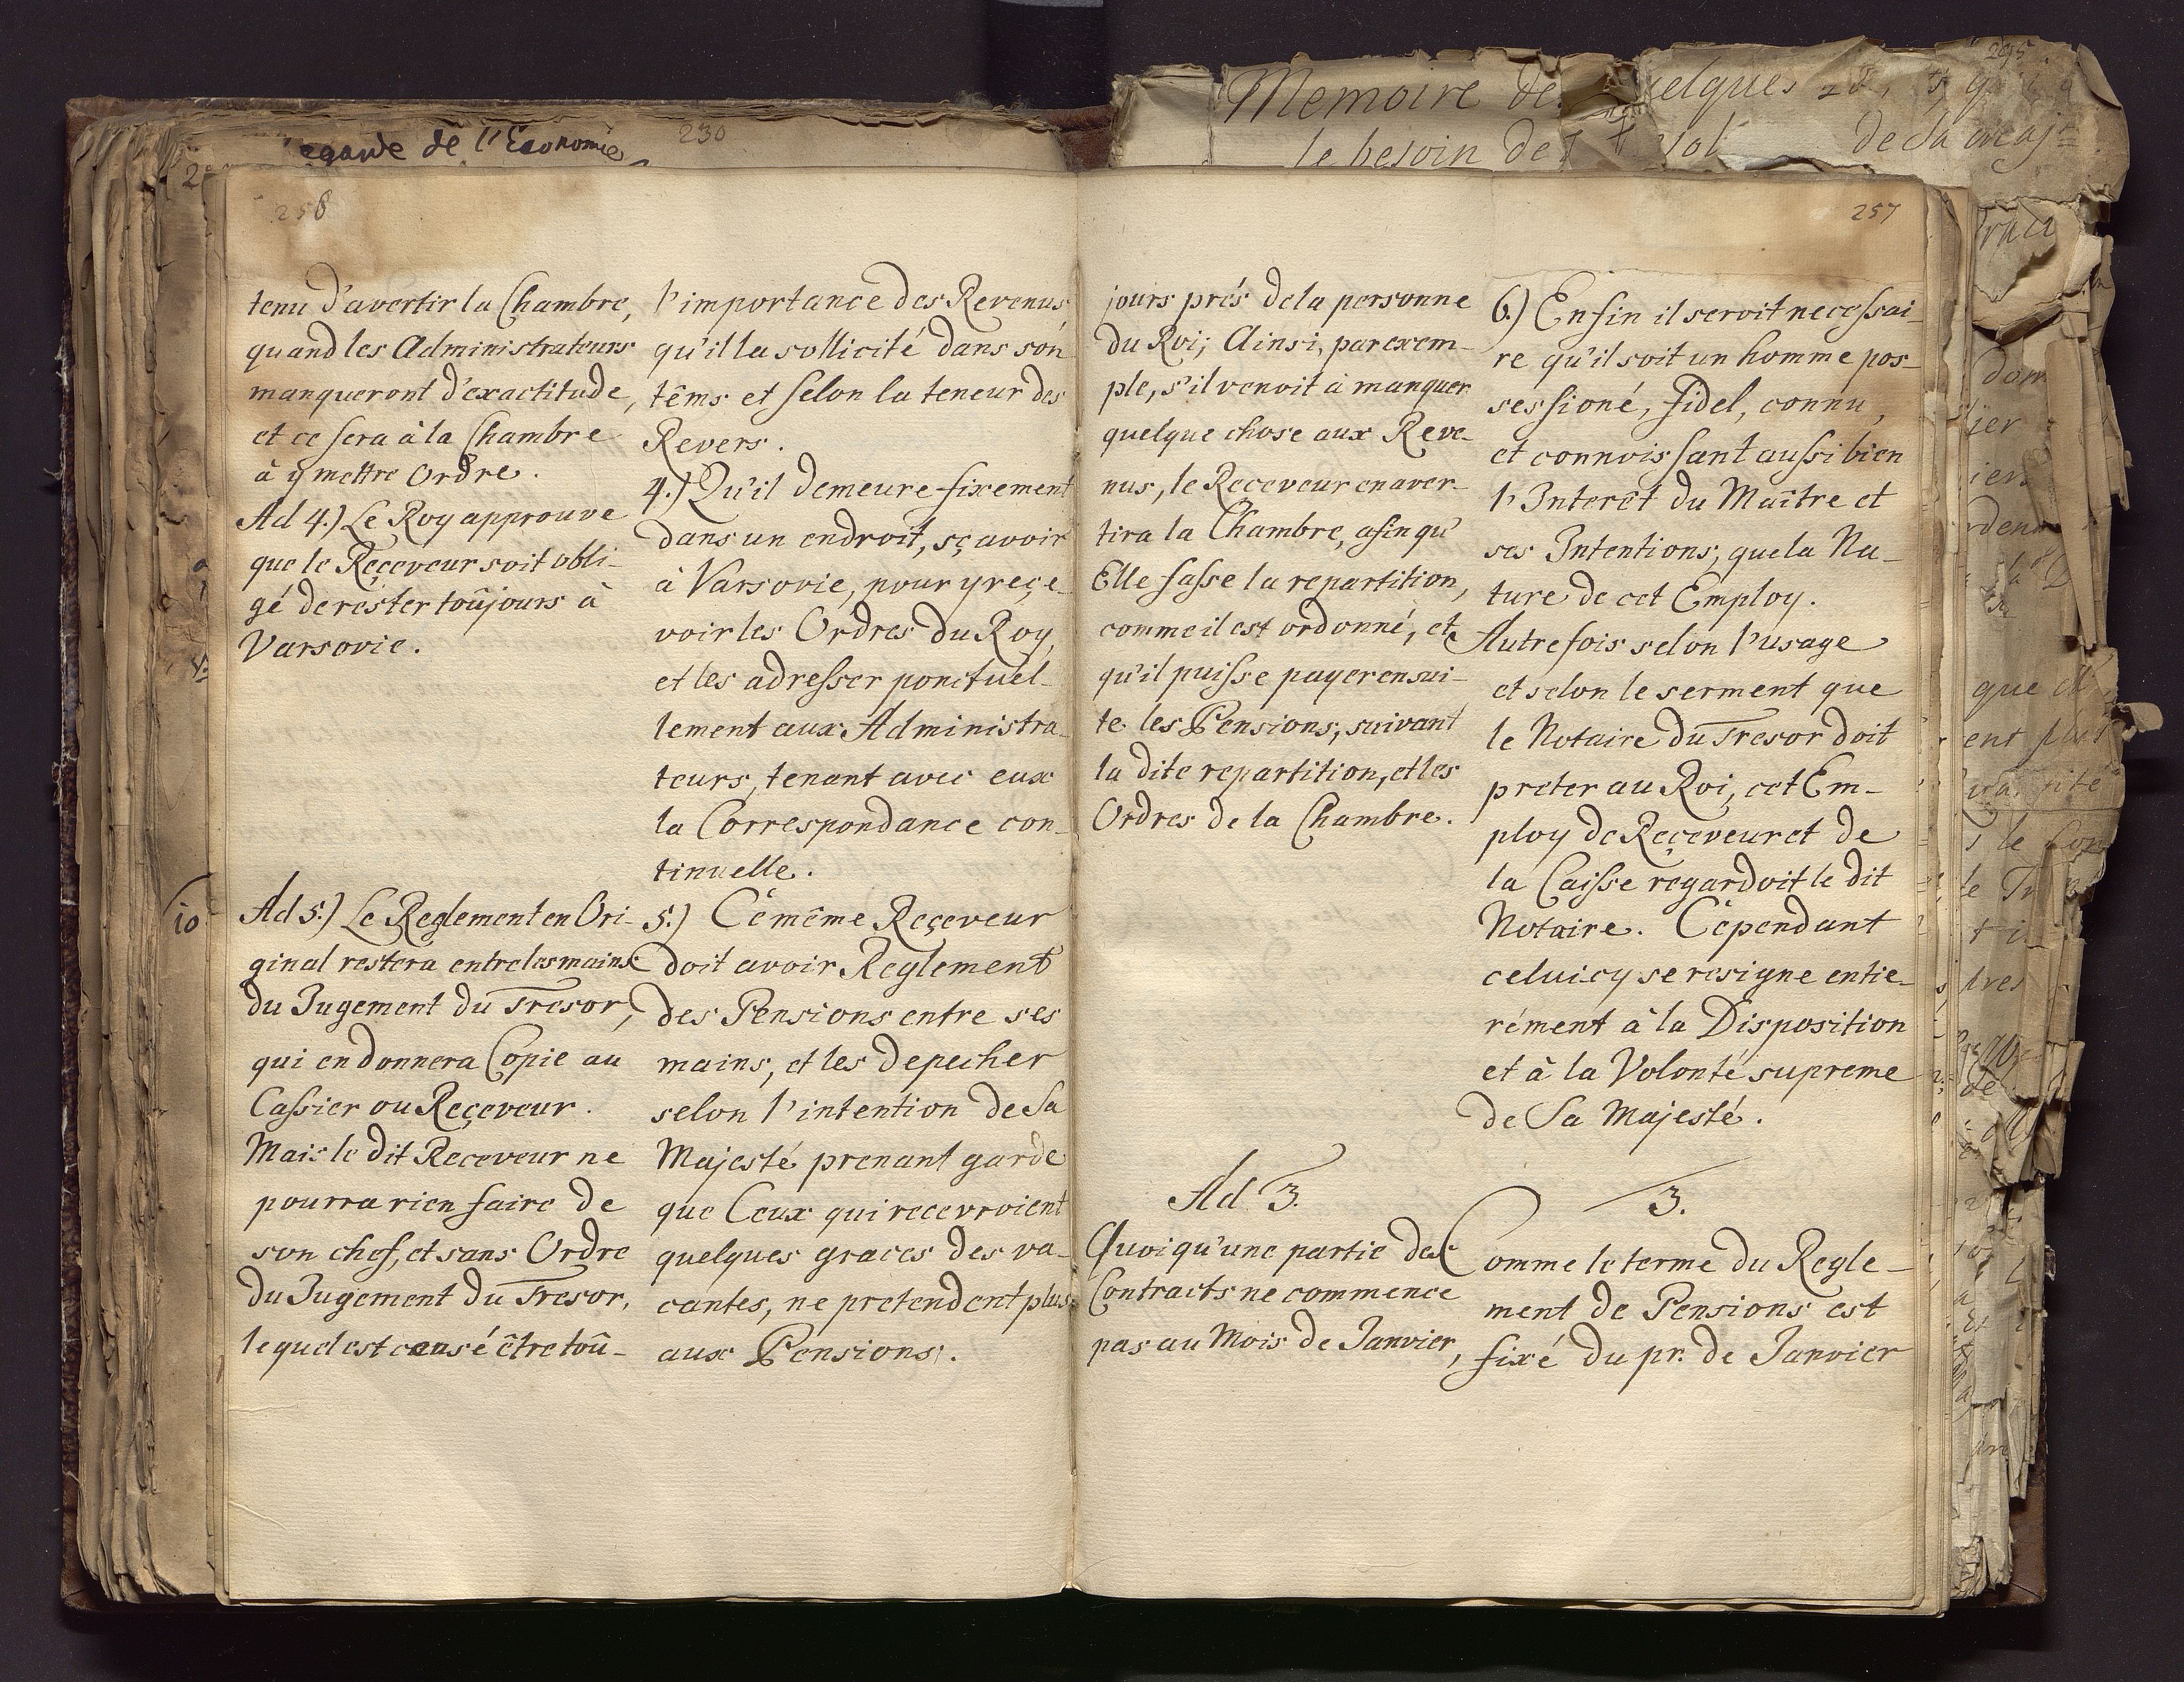 egarde de l'Economie
230
Memoire de quelques
le besoin de
de Sa Maj
295
258
tenu d'avertir la Chambre,
quand les Administrateurs
manqueront d'exactitude,
et ce sera à la Chambre
à y mettre Ordre.
Ad 4.) Le Roy approuve
que le Reçeveur soit obli-
gé de rester toûjours à
Varsovie.
Ad 5.) Le Reglement en Ori-
ginal restera entre les mains
du Jugement du Tresor,
qui en donnera Copie au
Cassier ou Reçeveur.
Mais le dit Reçeveur ne
pourra rien faire de
son chef, et sans Ordre
du Jugement du Tresor,
lequel est censé être toû-
l'importance des Revenus
qu'il la sollicité dans son
têms et selon la teneur des
Revers.
4.) Qu'il demeure fixement
dans un endroit, sçavoir
à Varsovie, pour y reçe-
voir les Ordres du Roy,
et les adresser ponctuel-
lement aux Administra-
teurs, tenant avec eux
la Correspondance con-
tinuelle.
5.) Cé même Reçeveur
doit avoir Reglement
des Pensions entre ses
mains, et les depecher
selon l'intention de Sa
Majesté prenant garde
que Ceux qui recevroient
quelques graces des va-
cantes, ne pretendent plus
aux Pensions.
10
257
jours prés de la personne
du Roi; Ainsi, par exem-
ple, s'il venoit à manquer
quelque chose aux Reve-
nus, le Reçeveur en aver-
tira la Chambre, afin qu'
Elle fasse la repartition,
comme il est ordonné, et
qu'il puisse payer ensui-
te les Pensions, suivant
la dite repartition, et les
Ordres de la Chambre.
Ad 3.
Quoiqu'une partie des
Contracts ne commence
pas au Mois de Janvier,
6.) Enfin il seroit necessai-
re qu'il soit un homme pos-
sessioné, fidel, connu,
et connoissant aussi bien
l'Interêt du Maître et
ses Intentions, que la Na-
ture de cet Employ.
Autrefois selon l'usage
et selon le serment que
le Notaire du Tresor doit
preter au Roi, cet Em-
ploy de Reçeveur et de
la Caisse regardoit le dit
Notaire. Cépendant
celuicy se resigne entie-
rément à la Disposition
et à la Volonté supreme
de Sa Majesté.
3.
Comme le terme du Regle-
ment de Pensions est
fixé du pr. de Janvier